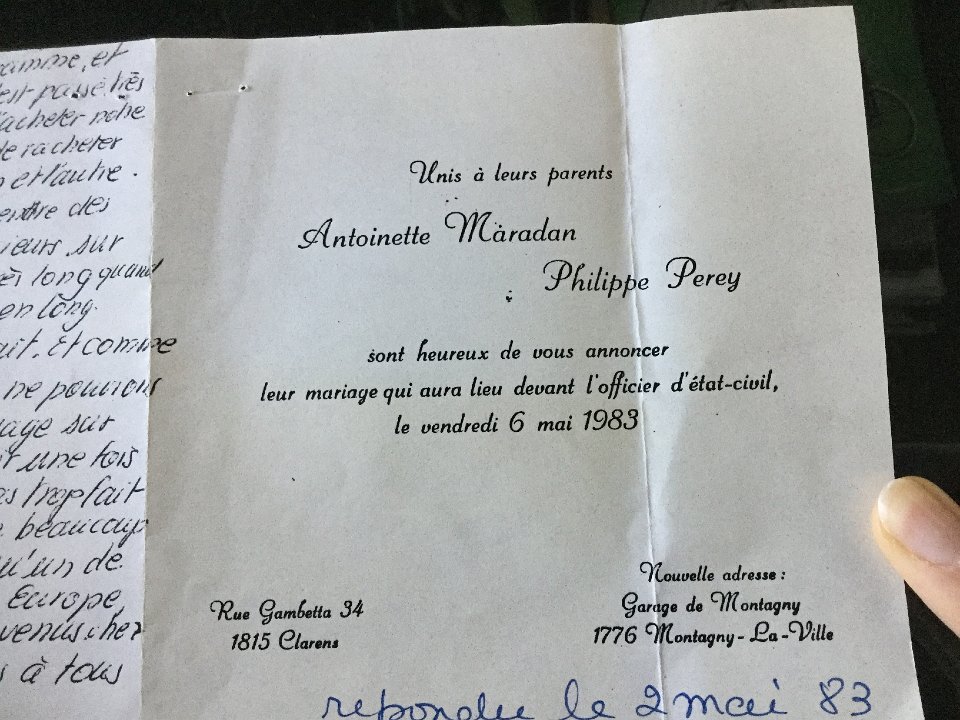 et
est passé très
acheter notre
de racheter
et l'autre.
des
sur
long quand
en long.
Et comme
ne pouvions
sur
une fois
trop fait
beaucoup
qu'un de
Europe,
venus chez
à tous
Unis à leurs parents
Antoinette Maradan
Philippe Perey
sont heureux de vous annoncer
leur mariage qui aura lieu devant l'officier d'état-civil,
le vendredi 6 mai 1983
Rue Gambetta 34
1815 Clarens
Nouvelle adresse :
Garage de Montagny
1776 Montagny-La-Ville
repondu le 2 mai 83